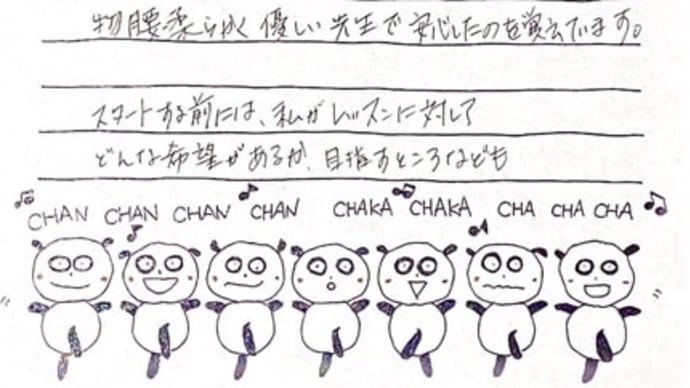 物腰柔らかく優しい先生で安心したのを覚えています。
スタートする前には、私がレッスンに対して
どんな希望があるか、目指すところなども
CHAN CHAN CHAN CHAN CHAKA CHAKA CHA CHA CHA